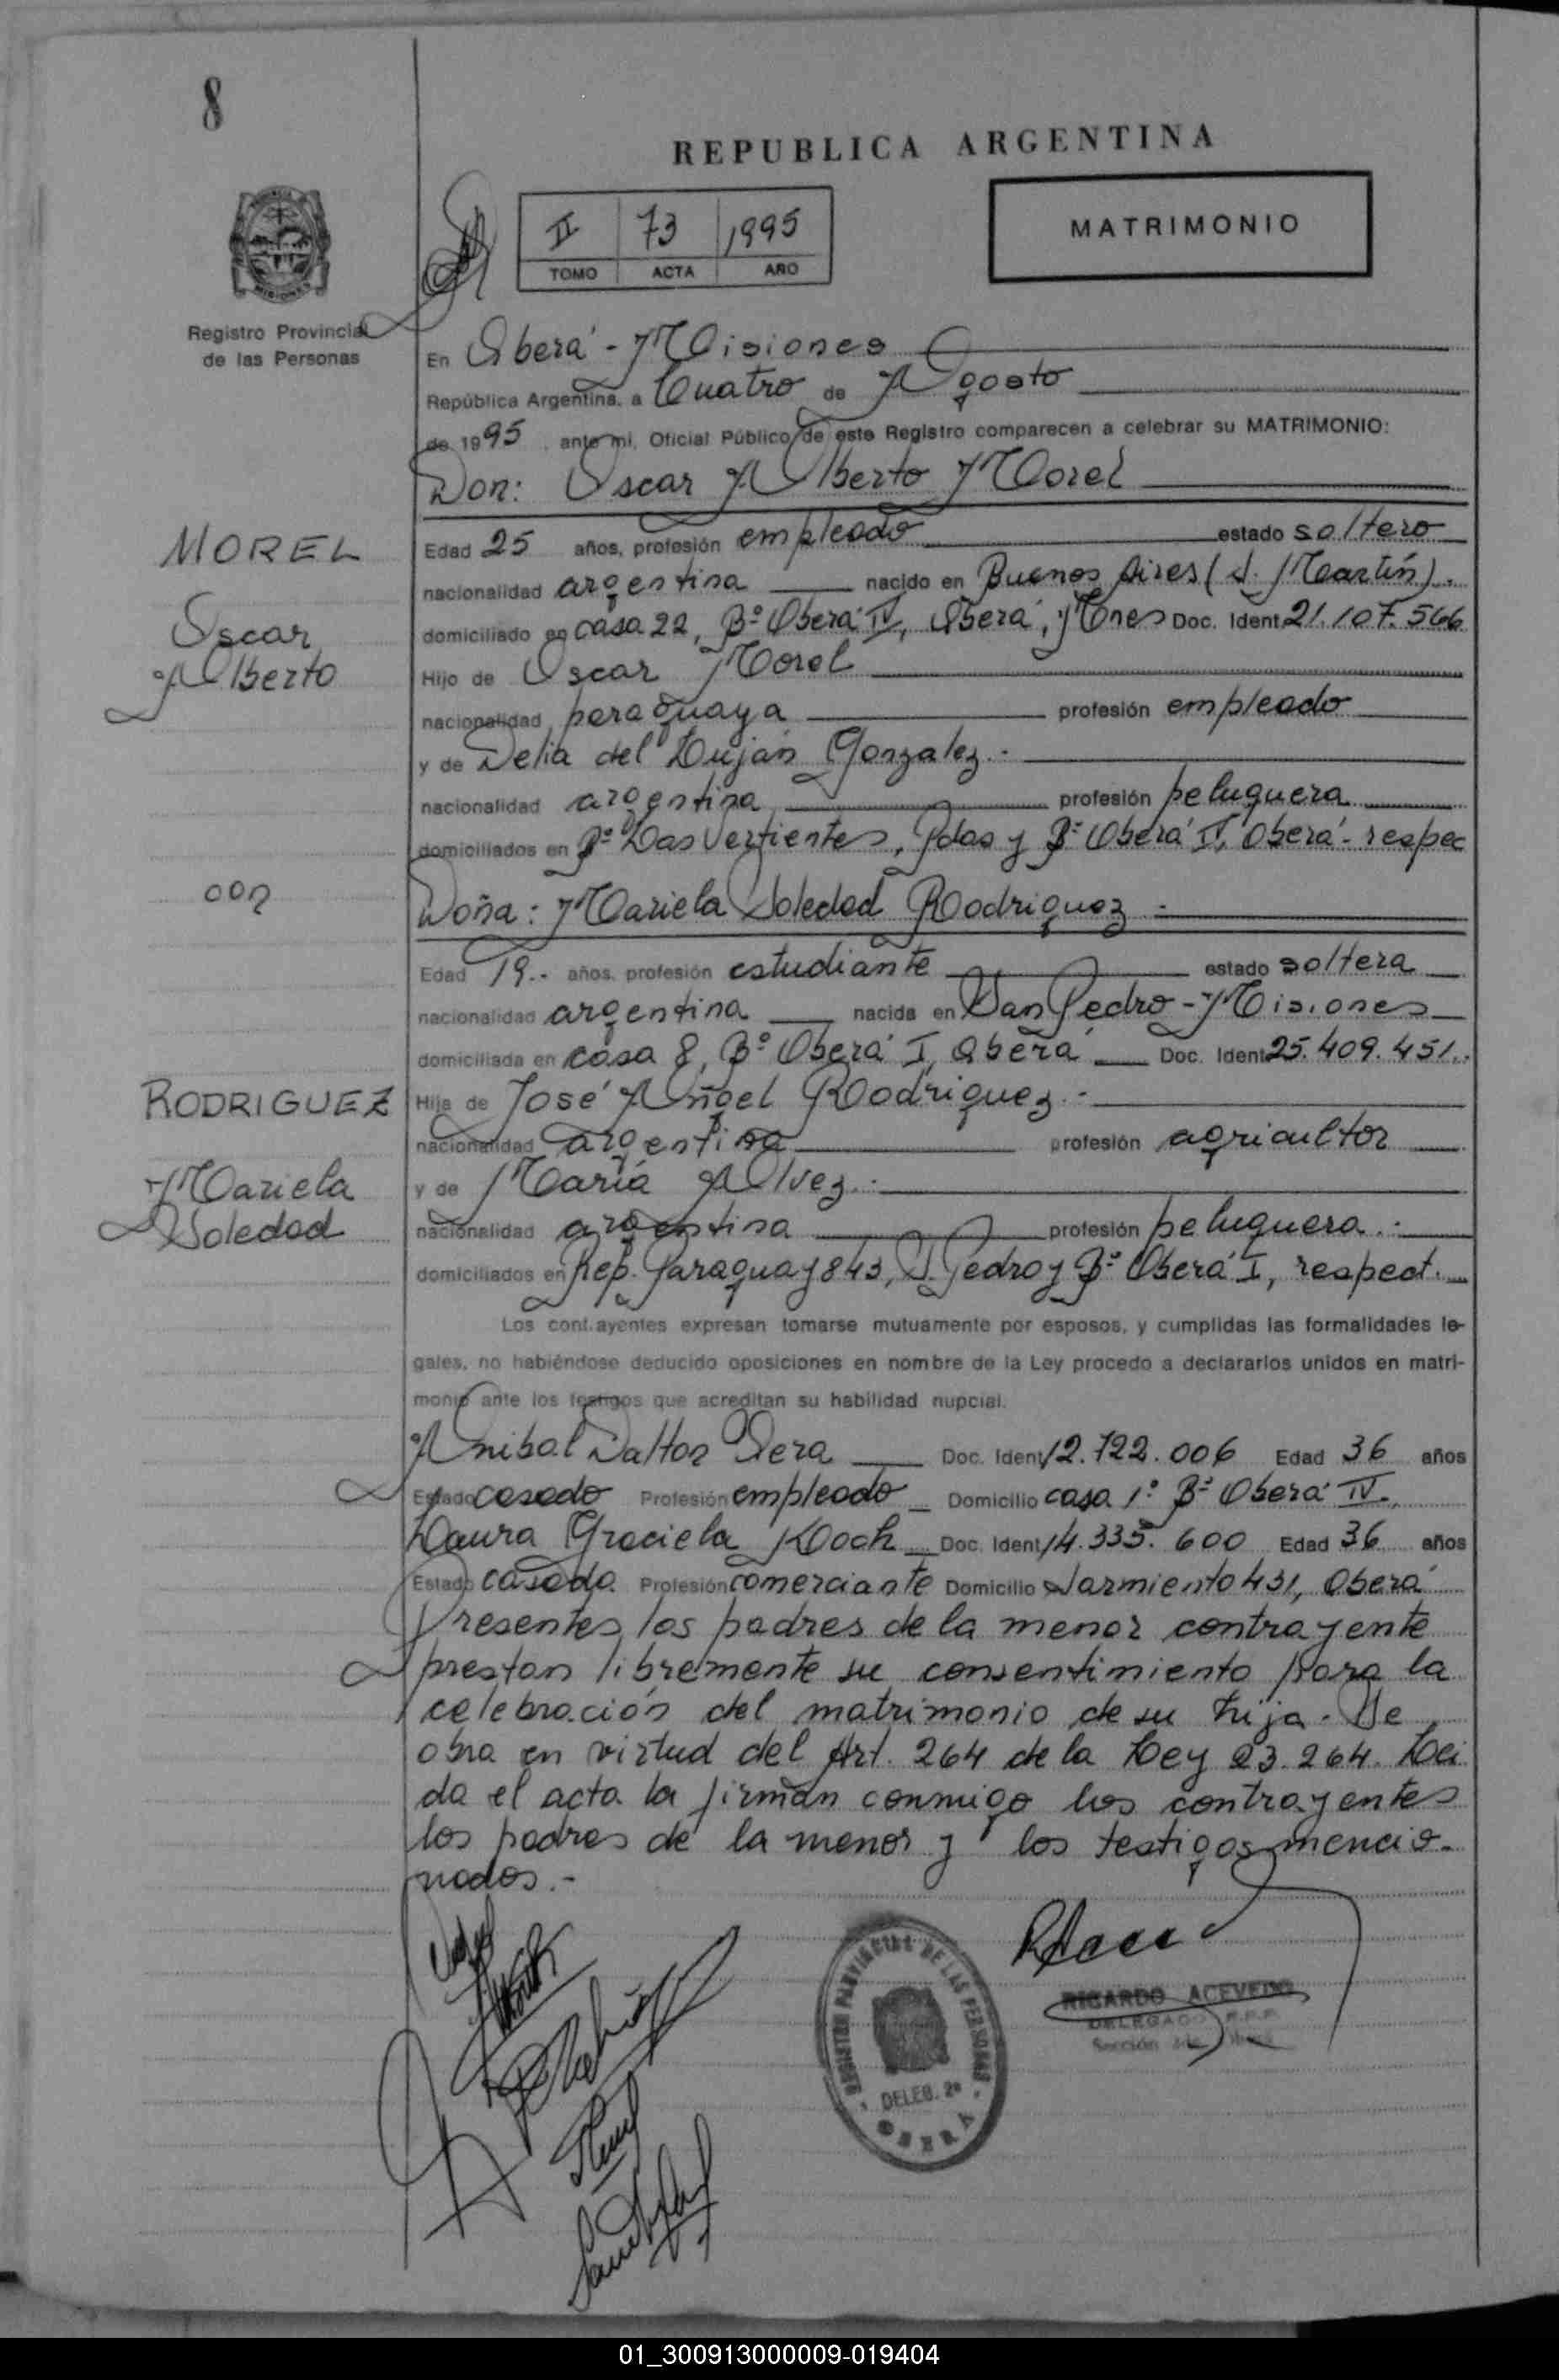 8
REPUBLICA ARGENTINA
II 73 1995
TOMO ACTA AÑO
MATRIMONIO
Registro Provincial
de las Personas
En Oberá - Misiones
República Argentina, a Cuatro de Agosto
de 1995, ante mi, Oficial Público de este Registro comparecen a celebrar su MATRIMONIO:
Don: Oscar Alberto Morel
MOREL
Oscar
Alberto
Edad 25 años, profesión empleado estado soltero
nacionalidad argentina nacido en Buenos Aires (S. Martín).
domiciliado en casa 22, Bº Oberá IV, Oberá, Mnes Doc. Ident 21.107.566
Hijo de Oscar Morel
nacionalidad paraguaya profesión empleado
y de Delia del Luján Gonzalez.-
nacionalidad argentina profesión peluquera
domiciliados en Bº Las Vertientes, Pdas y Bº Oberá IV, Oberá - respec
con
Doña: Mariela Soledad Rodriguez.-
Edad 19.- años, profesión estudiante estado soltera
nacionalidad argentina nacida en San Pedro - Misiones
domiciliada en casa 8, Bº Oberá I, Oberá Doc. Ident 25.409.451.
RODRIGUEZ
Mariela
Soledad
Hija de José Angel Rodriguez.-
nacionalidad argentina profesión agricultor
y de María Alvez.-
nacionalidad argentina profesión peluquera.-
domiciliados en Rep. Paraguay 843, S. Pedro y Bº Oberá I, respect.
Los contrayentes expresan tomarse mutuamente por esposos, y cumplidas las formalidades le-
gales, no habiéndose deducido oposiciones en nombre de la Ley procedo a declararlos unidos en matri-
monio ante los testigos que acreditan su habilidad nupcial.
Anibal Dalton Vera Doc. Ident 12.722.006 Edad 36 años
Estado casado Profesión empleado Domicilio casa 1º Bº Oberá IV.
Laura Graciela Koch Doc. Ident 14.335.600 Edad 36 años
Estado casada Profesión comerciante Domicilio Sarmiento 431, Oberá
Presentes los padres de la menor contrayente
prestan libremente su consentimiento para la
celebración del matrimonio de su hija. Se
obra en virtud del Art. 264 de la Ley 23.264. Lei
da el acta la firman conmigo los contrayentes
los padres de la menor y los testigos mencio-
nados.-
REGISTRO PROVINCIAL DE LAS PERSONAS
DELEG. 2ª
OBERA
RICARDO ACEVEDO
DELEGADO R.P.P.
01_300913000009-019404